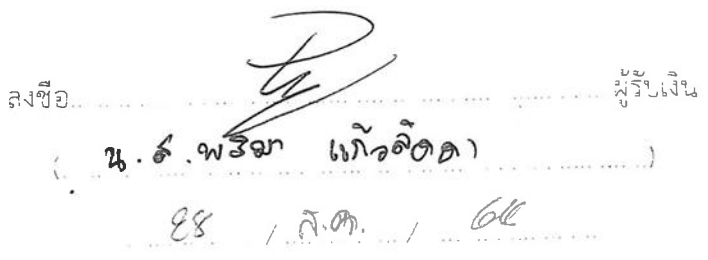 ลงชื่อ ผู้รับเงิน
( น.ส.พริมา แก้วลัดดา )
28 / ส.ค. /